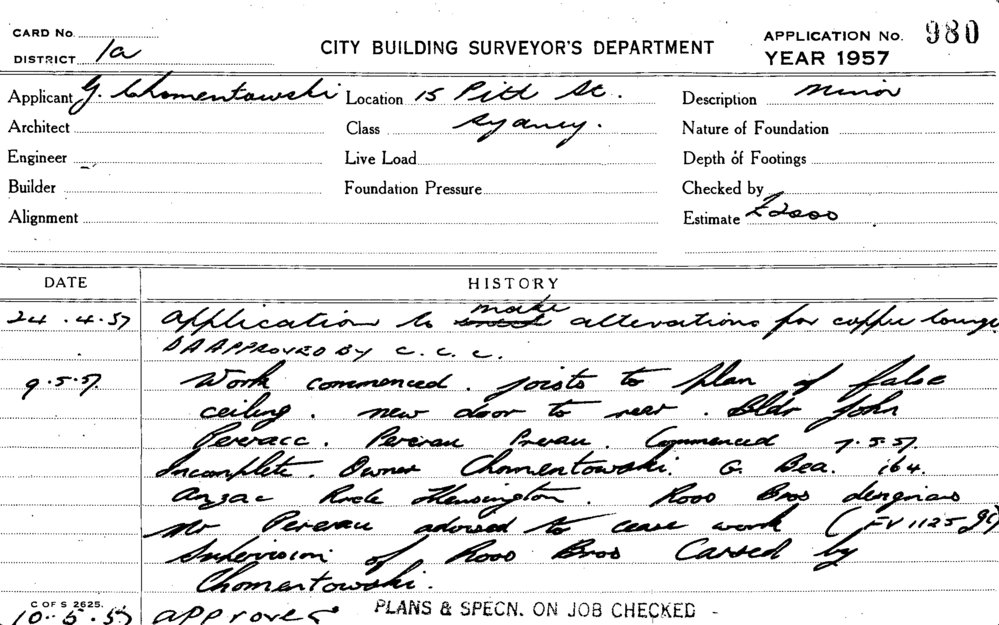 CARD No.
DISTRICT 1a
CITY BUILDING SURVEYOR'S DEPARTMENT
APPLICATION No. 980
YEAR 1957
Applicant G. Chomentowski Location 15 Pitt St. Description Minor
Architect Class Sydney. Nature of Foundation
Engineer Live Load Depth of Footings
Builder Foundation Pressure Checked by
Alignment Estimate £2000
DATE HISTORY
24.4.57 Application to make alterations for coffee lounge
DA APPROVED BY C.C.C.
9.5.57 Work commenced. joists to plan of false
ceiling. new door to rear. Bldr John
Pererau Commenced 7.5.57
Incomplete. Owner Chomentowski. G. 164.
Anzac Kensington. Ross Bros designers
Mr Pererau advised to cease work (FV1125
Supervision of Ross Bros by
Chomentowski.
C OF S 2625.
10.5.57 APPROVED PLANS & SPECN. ON JOB CHECKED